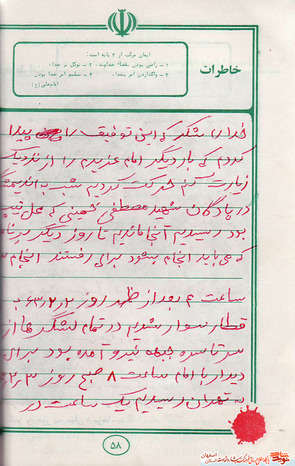 خاطرات
ایمان مرکب از ۴ پایه است:
۱ - راضی بودن بقضاء خداوند، ۲ - توکل بر خدا،
۳ - واگذاردن امر بخدا، ۴ - تسلیم امر خدا بودن
امام علی (ع)
خدا را شکر که این توفیق را پیدا
کردم که بار دیگر امام عزیزم را از نزدیک
زیارت کنم حرکت کردیم شب به اندیمشک
در پادگان شهید مصطفی خمینی که محل تیپ
بود رسیدیم آنجا ماندیم تا روز دیگر
که می باید انجام بشود برای رفتند انجام
ساعت ۴ بعد از ظهر روز ۶۳،۲،۲
قطار سوار شدیم در تمام لشگرها از
سرتاسر جبهه نیرو آمده بود برای
دیدار با امام ساعت ۸ صبح روز
به تهران رسیدیم یک ساعت در
۵۸